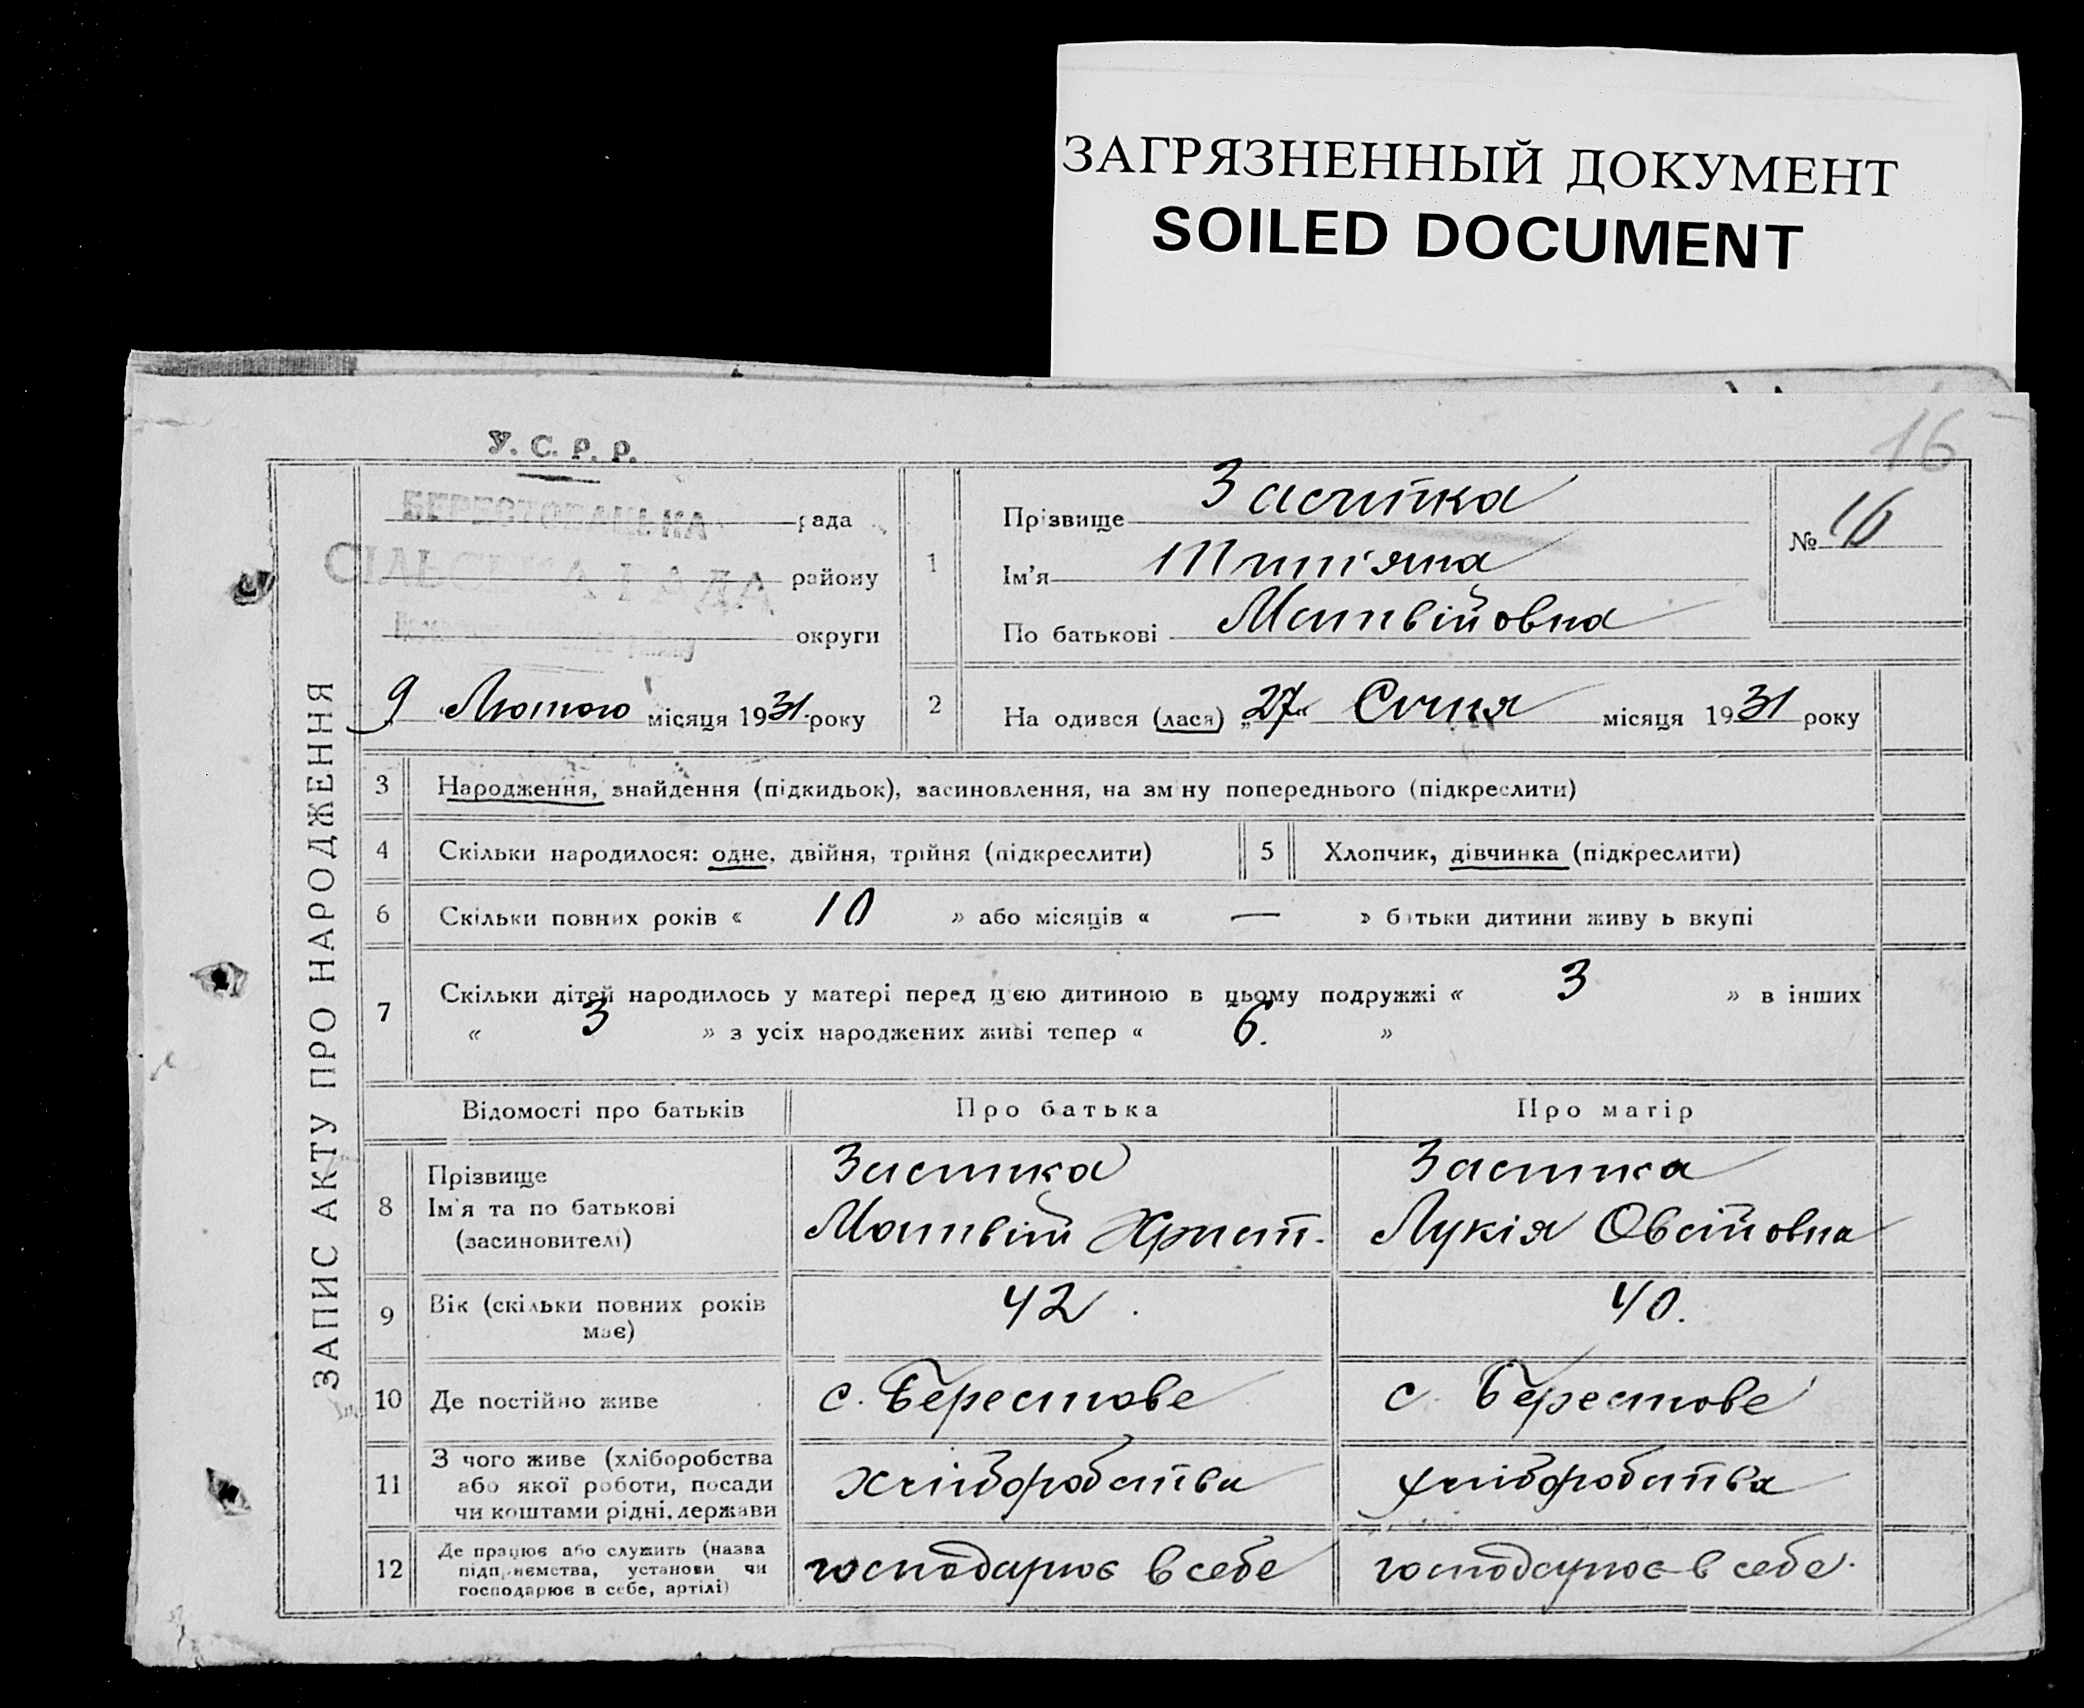 ЗАГРЯЗНЕННЫЙ ДОКУМЕНТ
SOILED DOCUMENT
16
У. С. Р. Р.
ЗАПИС АКТУ ПРО НАРОДЖЕННЯ
БЕРЕСТОВАЦЬКА рада
СІЛЬСЬКА РАДА району
округи
9 Лютого місяця 1931 року
1
Прізвище Заситка
Ім'я Тит'яна
По батькові Матвійовна
№ 16
2 На одився (лася) „27“ Січня місяця 1931 року
3 Народження, знайдення (підкидьок), засиновлення, на зм ну попереднього (підкреслити)
4 Скільки народилося: одне, двійня, трійня (підкреслити) 5 Хлопчик, дівчинка (підкреслити)
6 Скільки повних років « 10 » або місяців « — » батьки дитини живу ь вкупі
7 Скільки дітей народилось у матері перед цією дитиною в цьому подружжі « 3 » в інших
« 3 » з усіх народжених живі тепер « 6. »
Відомості про батьків Про батька Про матір
8 Прізвище Заситка Заситка
Ім'я та по батькові Матвій Христ. Лукія Овсійовна
(засиновителі)
9 Вік (скільки повних років має) 42. 40.
10 Де постійно живе с. Берестове с. Берестове
11 З чого живе (хліборобства або якої роботи, посади чи коштами рідні, держави хліборобства хліборобства
12 Де працює або служить (назва підприємства, установи чи господарює в себе, артілі) господарює в себе господарює в себе.